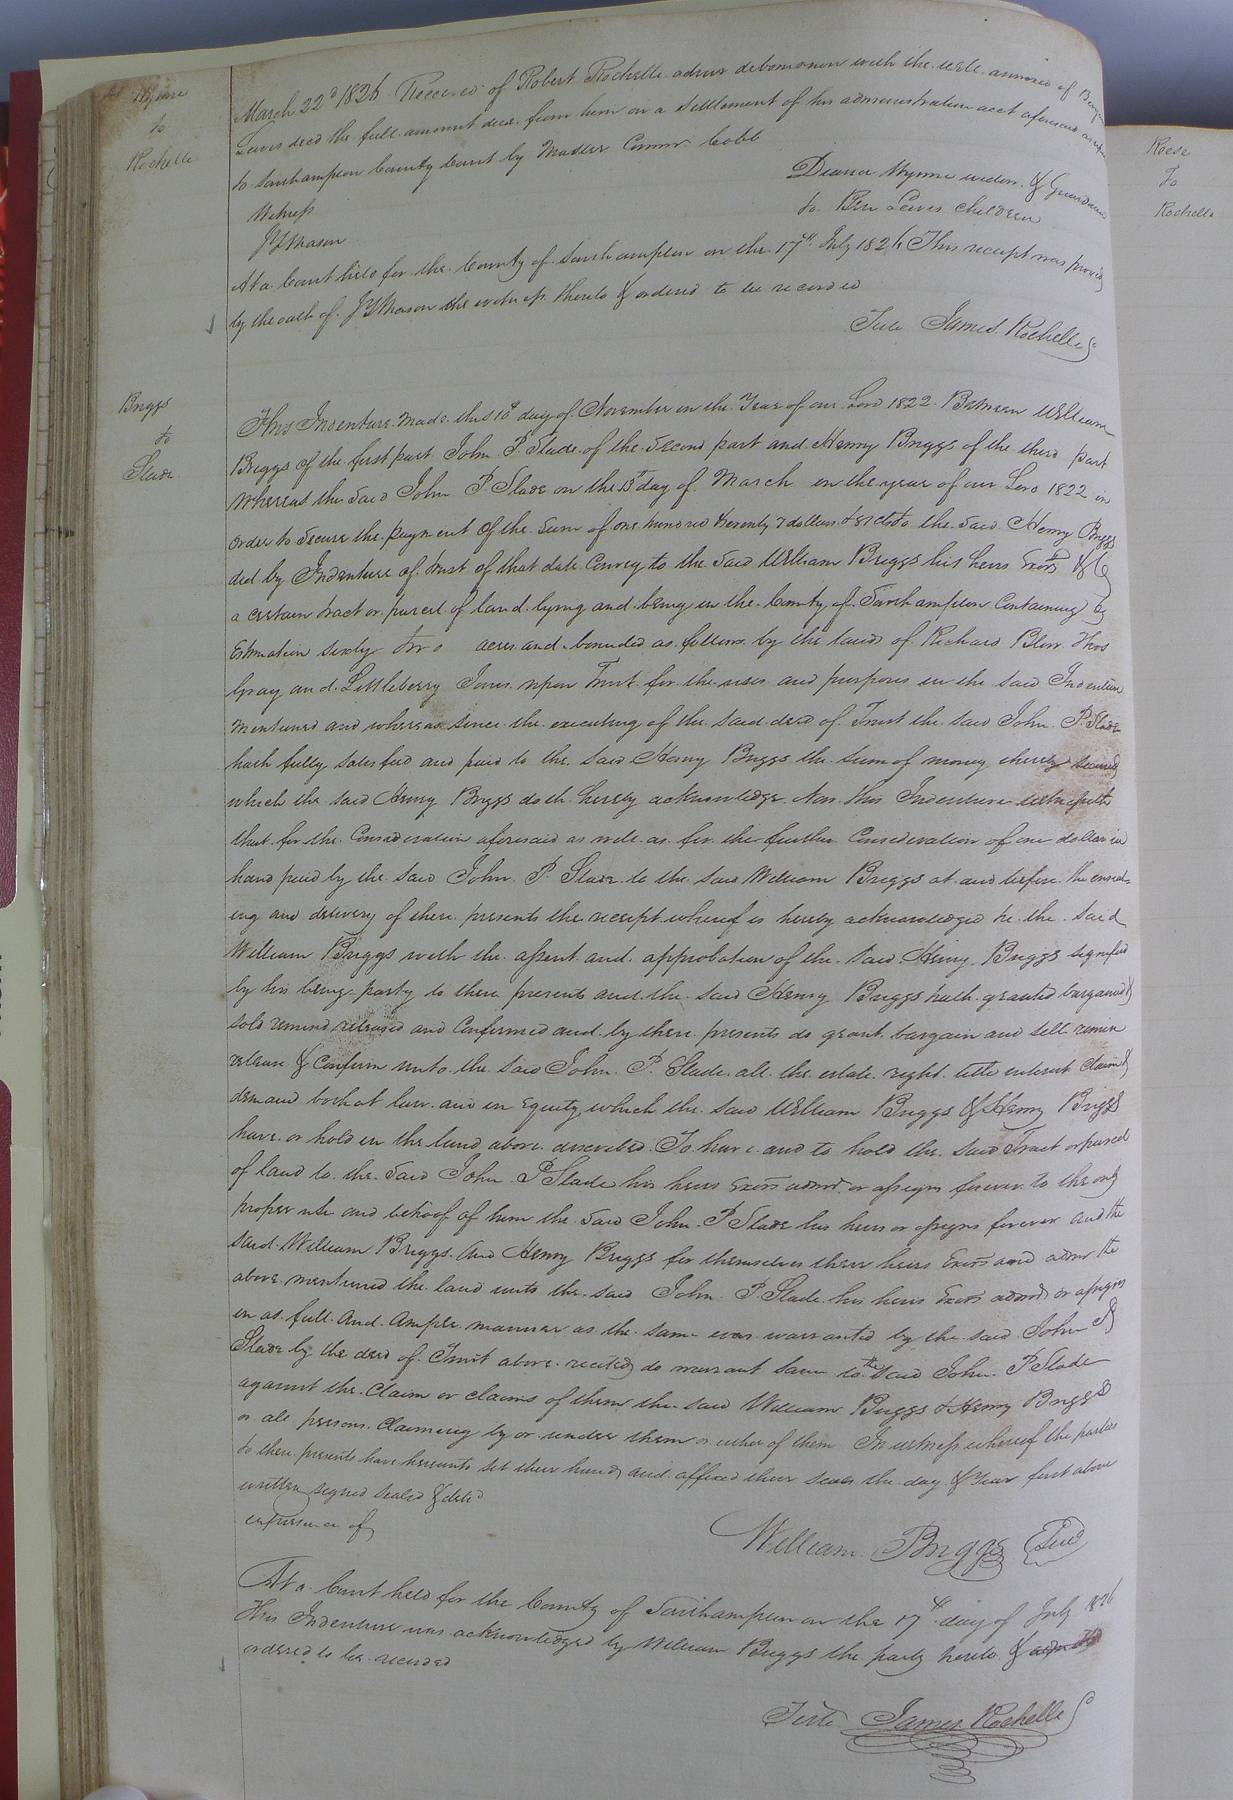 Wynne
to
Rochelle
March 22d 1826 Received of Robert Rochelle admr debonisnon with the will annexed of Benj
Lewis decd the full amount due from him on a settlement of his administration acct aforesaid
to Southampton County Court by Master Commr Cobb
Witness
Diana Wynne widow & Guardian
to Ben Lewis children
JYMason
At a Court held for the County of Southampton on the 17th July 1826 This receipt was proved
by the oath of JYMason the witness thereto & ordered to be recorded
Teste James Rochelle
Briggs
to
Slade
This Indenture made this 10th day of November in the Year of our Lord 1822. Between William
Briggs of the first part John P. Slade of the Second part and Henry Briggs of the third part
Whereas the Said John P. Slade on the 13th day of March in the year of our Lord 1822 in
order to Secure the payment of the Sum of one hundred twenty 7 dollars & 87cts to the Said Henry Briggs
did by Indenture of trust of that date Convey to the Said William Briggs his heirs Exors &C
a certain tract or parcel of land lying and being in the County of Southampton Containing by
Estimation sixty two acres and bounded as follows by the lands of Richard Blow Thos
Gray and Littleberry Jones upon Trust for the uses and purposes in the Said Indenture
mentioned and whereas since the executing of the said deed of Trust the said John P. Slade
hath fully satisfied and paid to the said Henry Briggs the sum of money thereby secured
which the said Henry Briggs doth hereby acknowledge Now this Indenture witnesseth
that for the Consideration aforesaid as well as for the further Consideration of one dollar in
hand paid by the said John P. Slade to the said William Briggs at and before the enseal-
ing and delivery of these presents the receipt whereof is hereby acknowledged he the said
William Briggs with the assent and approbation of the said Henry Briggs signified
by his being party to these presents and the said Henry Briggs hath granted bargained &
sold remised released and Confirmed and by these presents do grant bargain and sell remise
release & Confirm unto the said John P. Slade all the estate right title interest claim &
demand both at law and in Equity which the said William Briggs & Henry Briggs
have or hold in the land above described To have and to hold the said Tract or parcel
of land to the Said John P Slade his heirs Exors admr or assigns forever to the only
proper use and behoof of him the Said John P Slade his heirs or assigns forever and the
said William Briggs And Henry Briggs for themselves their heirs Exors and admr the
above mentioned the land unto the said John P. Slade his heirs Exors admrs or assigns
in as full And Ample manner as the same ever warranted by the said John P
Slade by the deed of Trust above recited do warrant same to the Said John P Slade
against the Claim or claims of them the said William Briggs & Henry Briggs
or all persons Claiming by or under them or either of them In witness whereof the parties
to these presents have hereunto set their hands and affixed their seals the day & Year first above
written signed sealed & deld
in presence of
William Briggs Seal
At a Court held for the County of Southampton on the 17th day of July 1826
This Indenture was acknowledged by William Briggs the party hereto &
ordered to be recorded
Teste James Rochelle
Rose
To
Rochelle